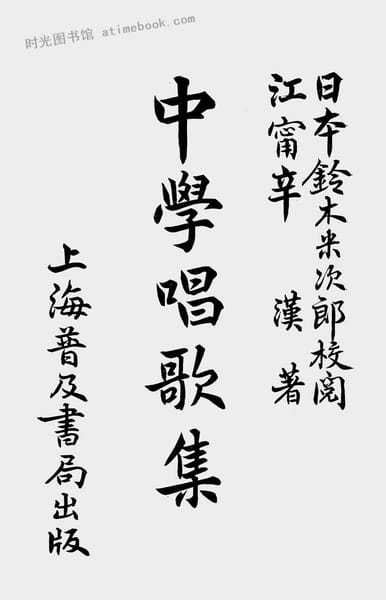 时光图书馆 atimebook.com
日本鈴木米次郎校閱
江甯辛 漢 著
中學唱歌集
上海普及書局出版